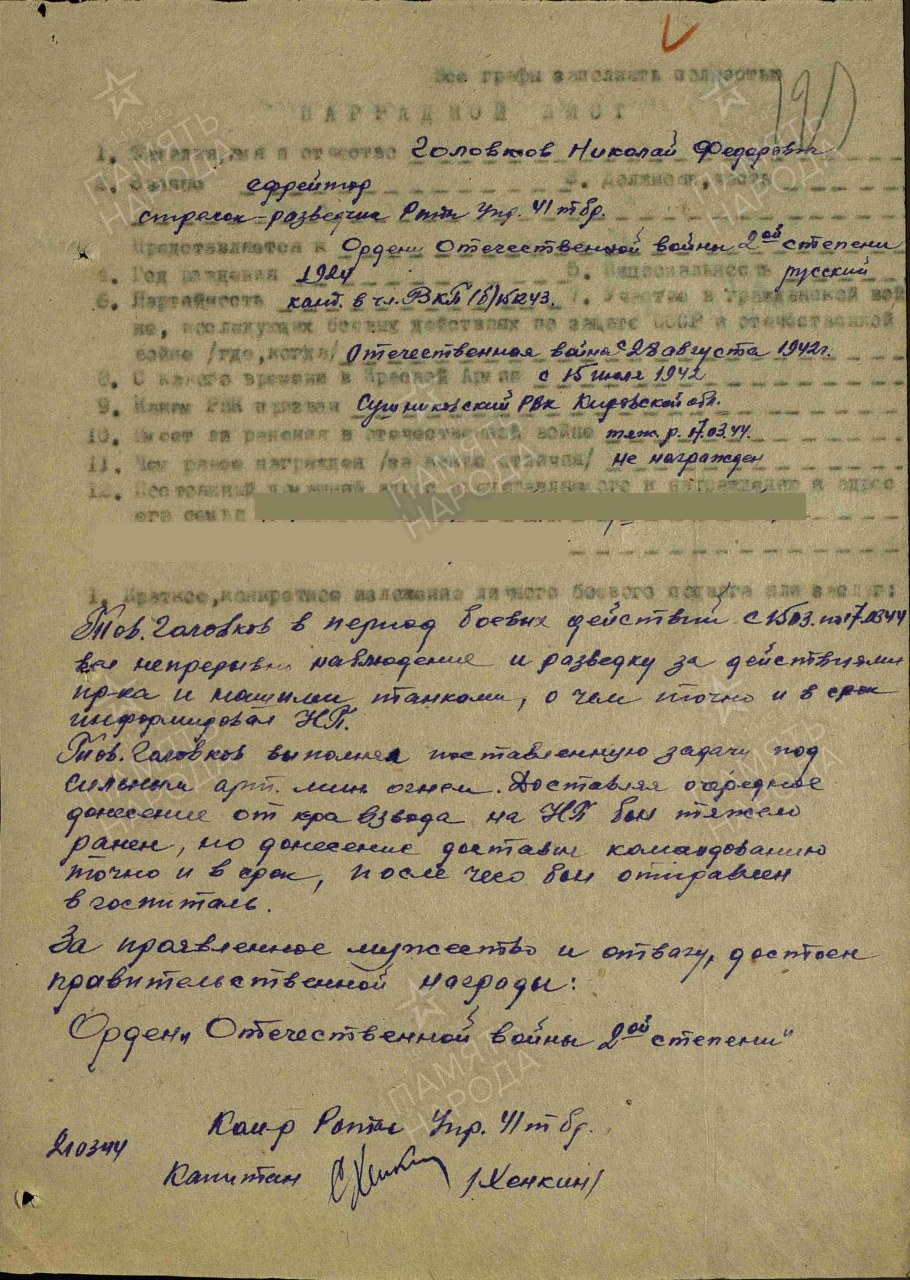 Все графы заполнять полностью
190
НАГРАДНОЙ ЛИСТ
1. Фамилия, имя и отчество Головков Николай Федорович
2. Звание ефрейтор 3. Должность, часть
стрелок-разведчик Роты Упр. 41 тбр.
Представляется к Ордену Отечественной войны 2ой степени
4. Год рождения 1924 5. Национальность русский
6. Партийность канд. в чл. ВКП(б) 7. Участие в гражданской вой
не, последующих боевых действиях по защите СССР и отечественной
войне /где, когда/ Отечественная война с 28 августа 1942г.
8. С какого времени в Красной Армии с 15 июля 1942
9. Каким РВК призван РВК Кировской обл.
10. Имеет ли ранения в отечественной войне тяж. р. 17.03.44.
11. Чем ранее награжден /за какие отличия/ не награжден
12. Постоянный домашний адрес представляемого к награждению и адрес
его семьи
1. Краткое, конкретное изложение личного боевого подвига или заслуг:
Тов. Головков в период боевых действий с 15.03. по 17.03.44
вел непрерывно наблюдение и разведку за действиями
пр-ка и нашими танками, о чем точно и в срок
информировал НП.
Тов. Головков выполнял поставленную задачу под
сильным арт. мин огнем. Доставляя очередное
донесение от к-ра взвода на НП был тяжело
ранен, но донесение доставил командованию
точно и в срок, после чего был отправлен
в госпиталь.
За проявленное мужество и отвагу, достоен
правительственной награды:
Орден „Отечественной войны 2ой степени"
Ком-р Роты Упр. 41 тбр.
21.03.44
Капитан /Хенкин/
ПАМЯТЬ НАРОДА